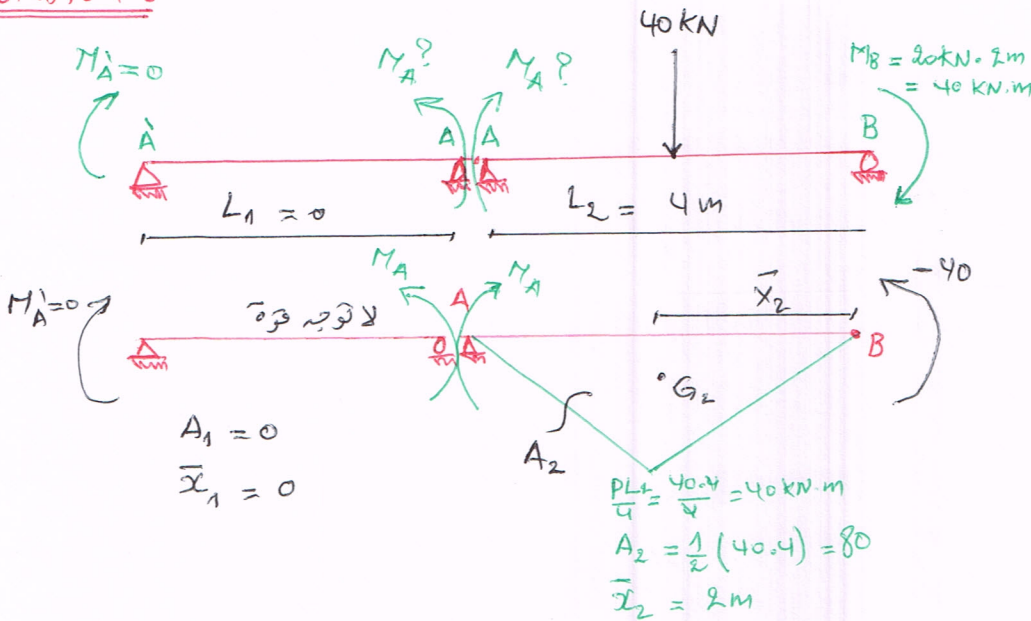 40 KN
M_A' = 0
M_A?
M_A?
M_B = 20kN · 2m
= 40 KN.m
A'
A
A
B
L₁ = 0
L₂ = 4m
M_A' = 0
M_A
M_A
A
x̄₂
-40
لا توجد قوة
B
G₂
A₁ = 0
x̄₁ = 0
A₂
PL₂/4 = 40.4/4 = 40 KN.m
A₂ = 1/2 (40.4) = 80
x̄₂ = 2m